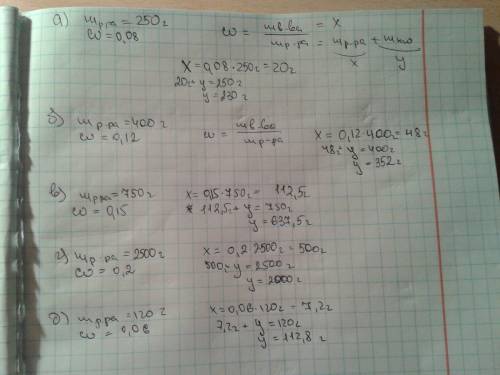 а) mр-ра = 250г   ω = mв-ва / mр-ра = x
ω = 0,08   mр-ра = mр-ра + mH₂O
x   y
x = 0,08 · 250г = 20г
20г + y = 250г
y = 230г
б) mр-ра = 400г   ω = mв-ва / mр-ра   x = 0,12 · 400г = 48г
ω = 0,12   48г + y = 400г
y = 352г
в) mр-ра = 750г   x = 0,15 · 750г = 112,5г
ω = 0,15   112,5г + y = 750г
y = 637,5г
г) mр-ра = 2500г   x = 0,2 · 2500г = 500г
ω = 0,2   500г + y = 2500г
y = 2000г
д) mр-ра = 120г   x = 0,06 · 120г = 7,2г
ω = 0,06   7,2г + y = 120г
y = 112,8г